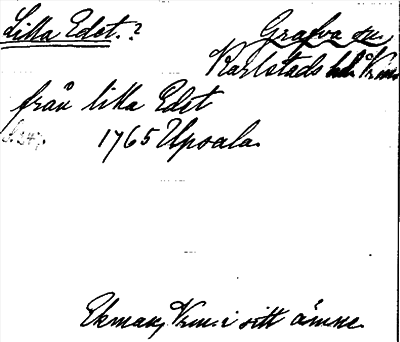 Lilla Edet.?
Grafva sn.
Karlstads hd. Vrml.
från lilla Edet
s. 247.
1765 Upsala.
Ekman, Vrml. i sitt ämne